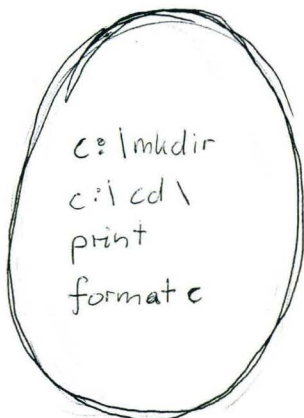 c:\mkdir
c:\ cd \
print
format c